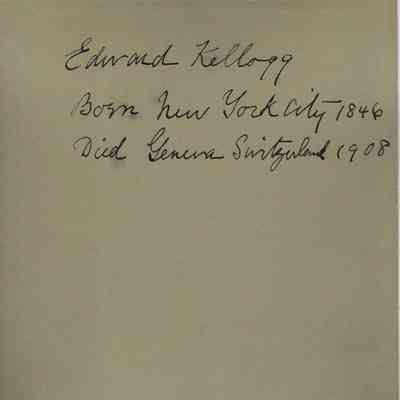 Edward Kellogg
Born New York City 1846
Died Geneva Switzerland 1908